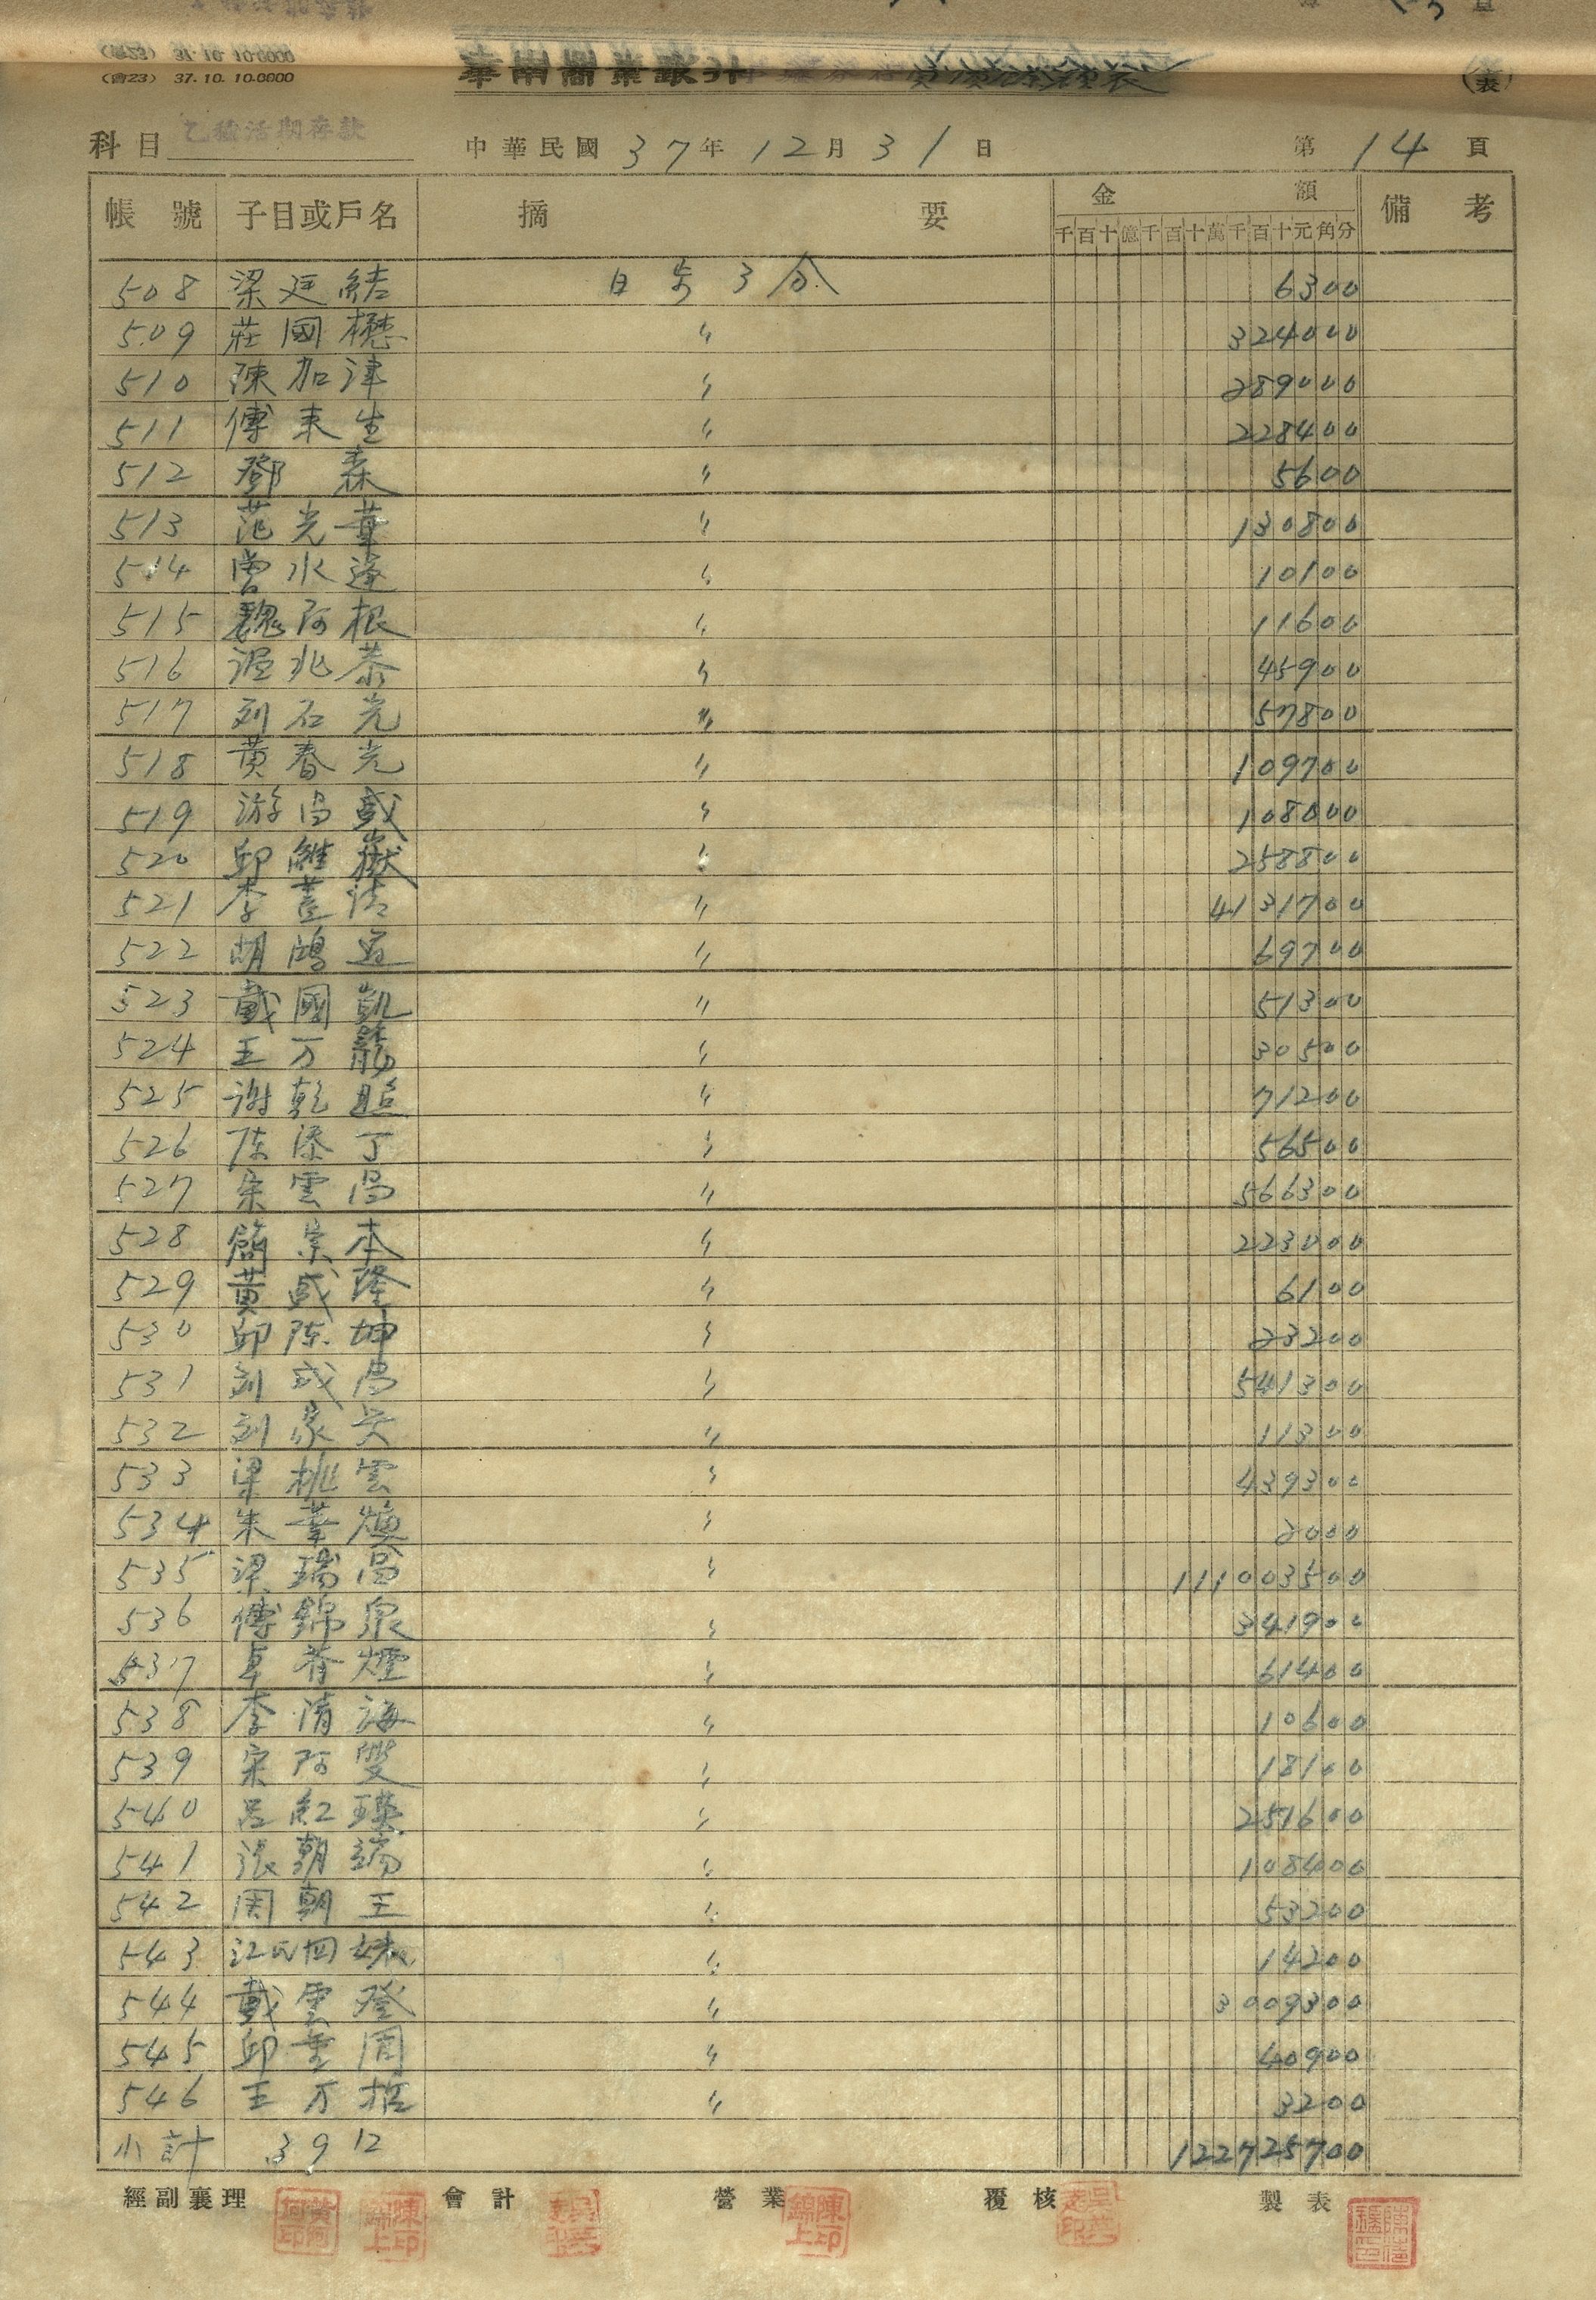 (會23) 37.10.10.0000
華南商業銀行
(表)
科目 乙種活期存款 中華民國 37年 12月 31日 第 14 頁
帳號 子目或戶名 摘要 金額 備考
千百十億千百十萬千百十元角分
508 梁廷結 日步3分 6300
509 莊國樾 〃 324000
510 陳加津 〃 289000
511 傅来生 〃 228400
512 鄧森 〃 5600
513 范光華 〃 130800
514 曾水逢 〃 10100
515 魏阿根 〃 11600
516 溫兆恭 〃 45900
517 刘石光 〃 57800
518 黄春光 〃 109700
519 游昌盛 〃 108000
520 邱維嶽 〃 258800
521 李 〃 4131700
522 胡鴻 〃 69700
523 戴國凱 〃 51300
524 王万龍 〃 30500
525 謝乾 〃 71200
526 陈添丁 〃 56500
527 宋雲昌 〃 566300
528 簡宗本 〃 223000
529 黄盛隆 〃 6100
530 邱陈坤 〃 23200
531 刘成昌 〃 541300
532 刘家 〃 11300
533 梁桃雲 〃 439300
534 朱華煥 〃 2000
535 梁瑞昌 〃 111003500
536 傅錦泉 〃 341900
537 卓 煙 〃 61400
538 李清海 〃 10600
539 宋阿雙 〃 18100
540 呂紅瑛 〃 251600
541 張朝端 〃 108400
542 周朝王 〃 53200
543 江氏四妹 〃 14200
544 戴雲登 〃 3009300
545 邱 周 〃 40900
546 王万 〃 3200
小計 39口 122725700
經副襄理 會計 營業 覆核 製表